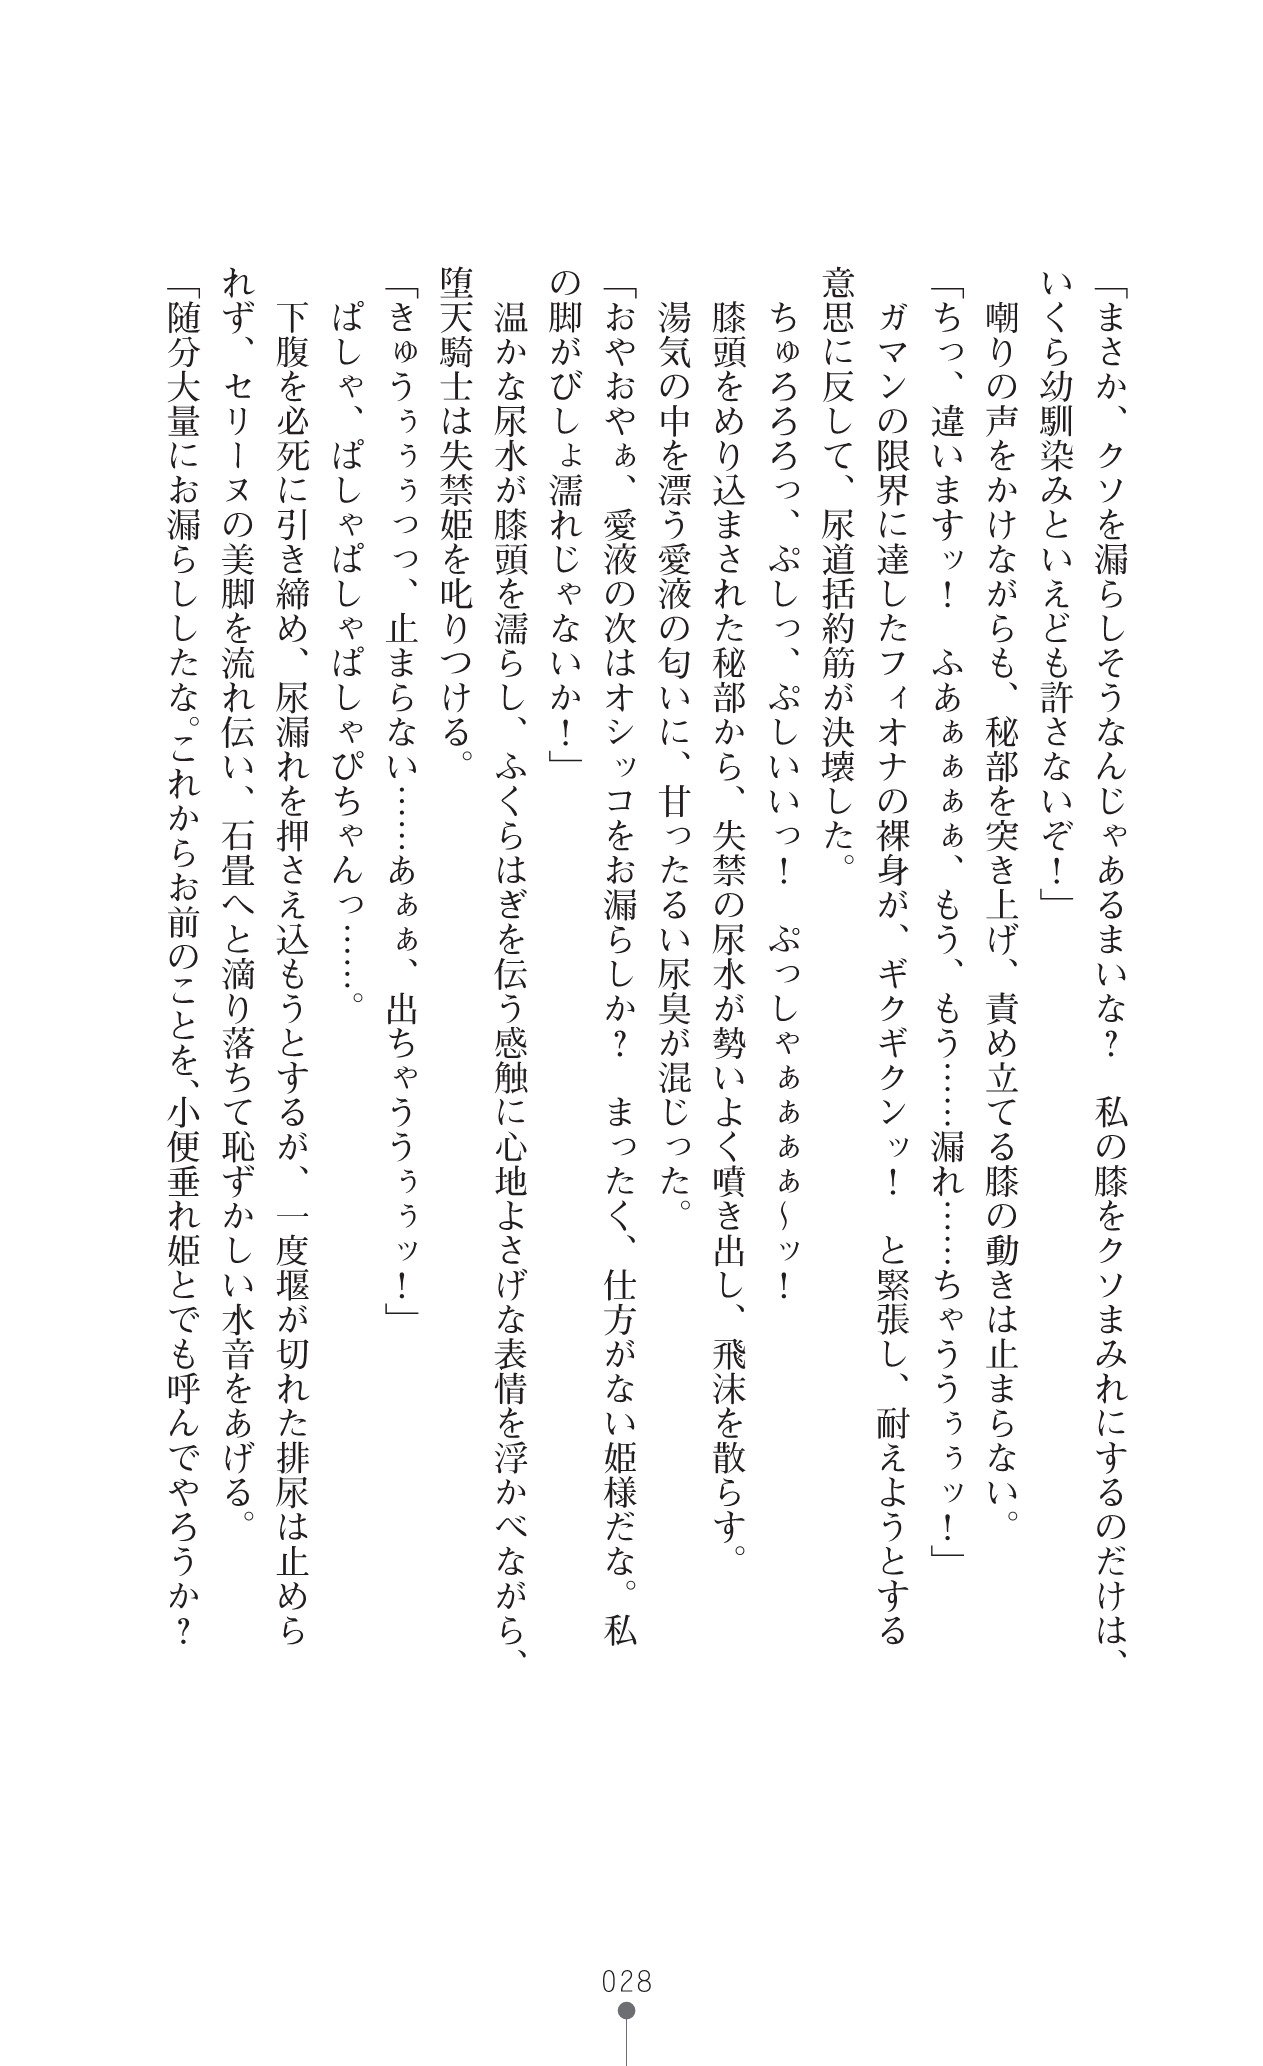 「まさか、クソを漏らしそうなんじゃあるまいな？　私の膝をクソまみれにするのだけは、
いくら幼馴染みといえども許さないぞ！」
　嘲りの声をかけながらも、秘部を突き上げ、責め立てる膝の動きは止まらない。
「ちっ、違いますッ！　ふあぁぁぁぁ、もう、もう……漏れ……ちゃううぅぅッ！」
　ガマンの限界に達したフィオナの裸身が、ギクギクンッ！　と緊張し、耐えようとする
意思に反して、尿道括約筋が決壊した。
　ちゅろろろっ、ぷしっ、ぷしいいっ！　ぷっしゃぁぁぁぁ～ッ！
　膝頭をめり込まされた秘部から、失禁の尿水が勢いよく噴き出し、飛沫を散らす。
　湯気の中を漂う愛液の匂いに、甘ったるい尿臭が混じった。
「おやおやぁ、愛液の次はオシッコをお漏らしか？　まったく、仕方がない姫様だな。私
の脚がびしょ濡れじゃないか！」
　温かな尿水が膝頭を濡らし、ふくらはぎを伝う感触に心地よさげな表情を浮かべながら、
堕天騎士は失禁姫を叱りつける。
「きゅうぅぅぅっっ、止まらない……あぁぁ、出ちゃううぅぅッ！」
　ぱしゃ、ぱしゃぱしゃぱしゃぴちゃんっ……。
　下腹を必死に引き締め、尿漏れを押さえ込もうとするが、一度堰が切れた排尿は止めら
れず、セリーヌの美脚を流れ伝い、石畳へと滴り落ちて恥ずかしい水音をあげる。
「随分大量にお漏らししたな。これからお前のことを、小便垂れ姫とでも呼んでやろうか？
028